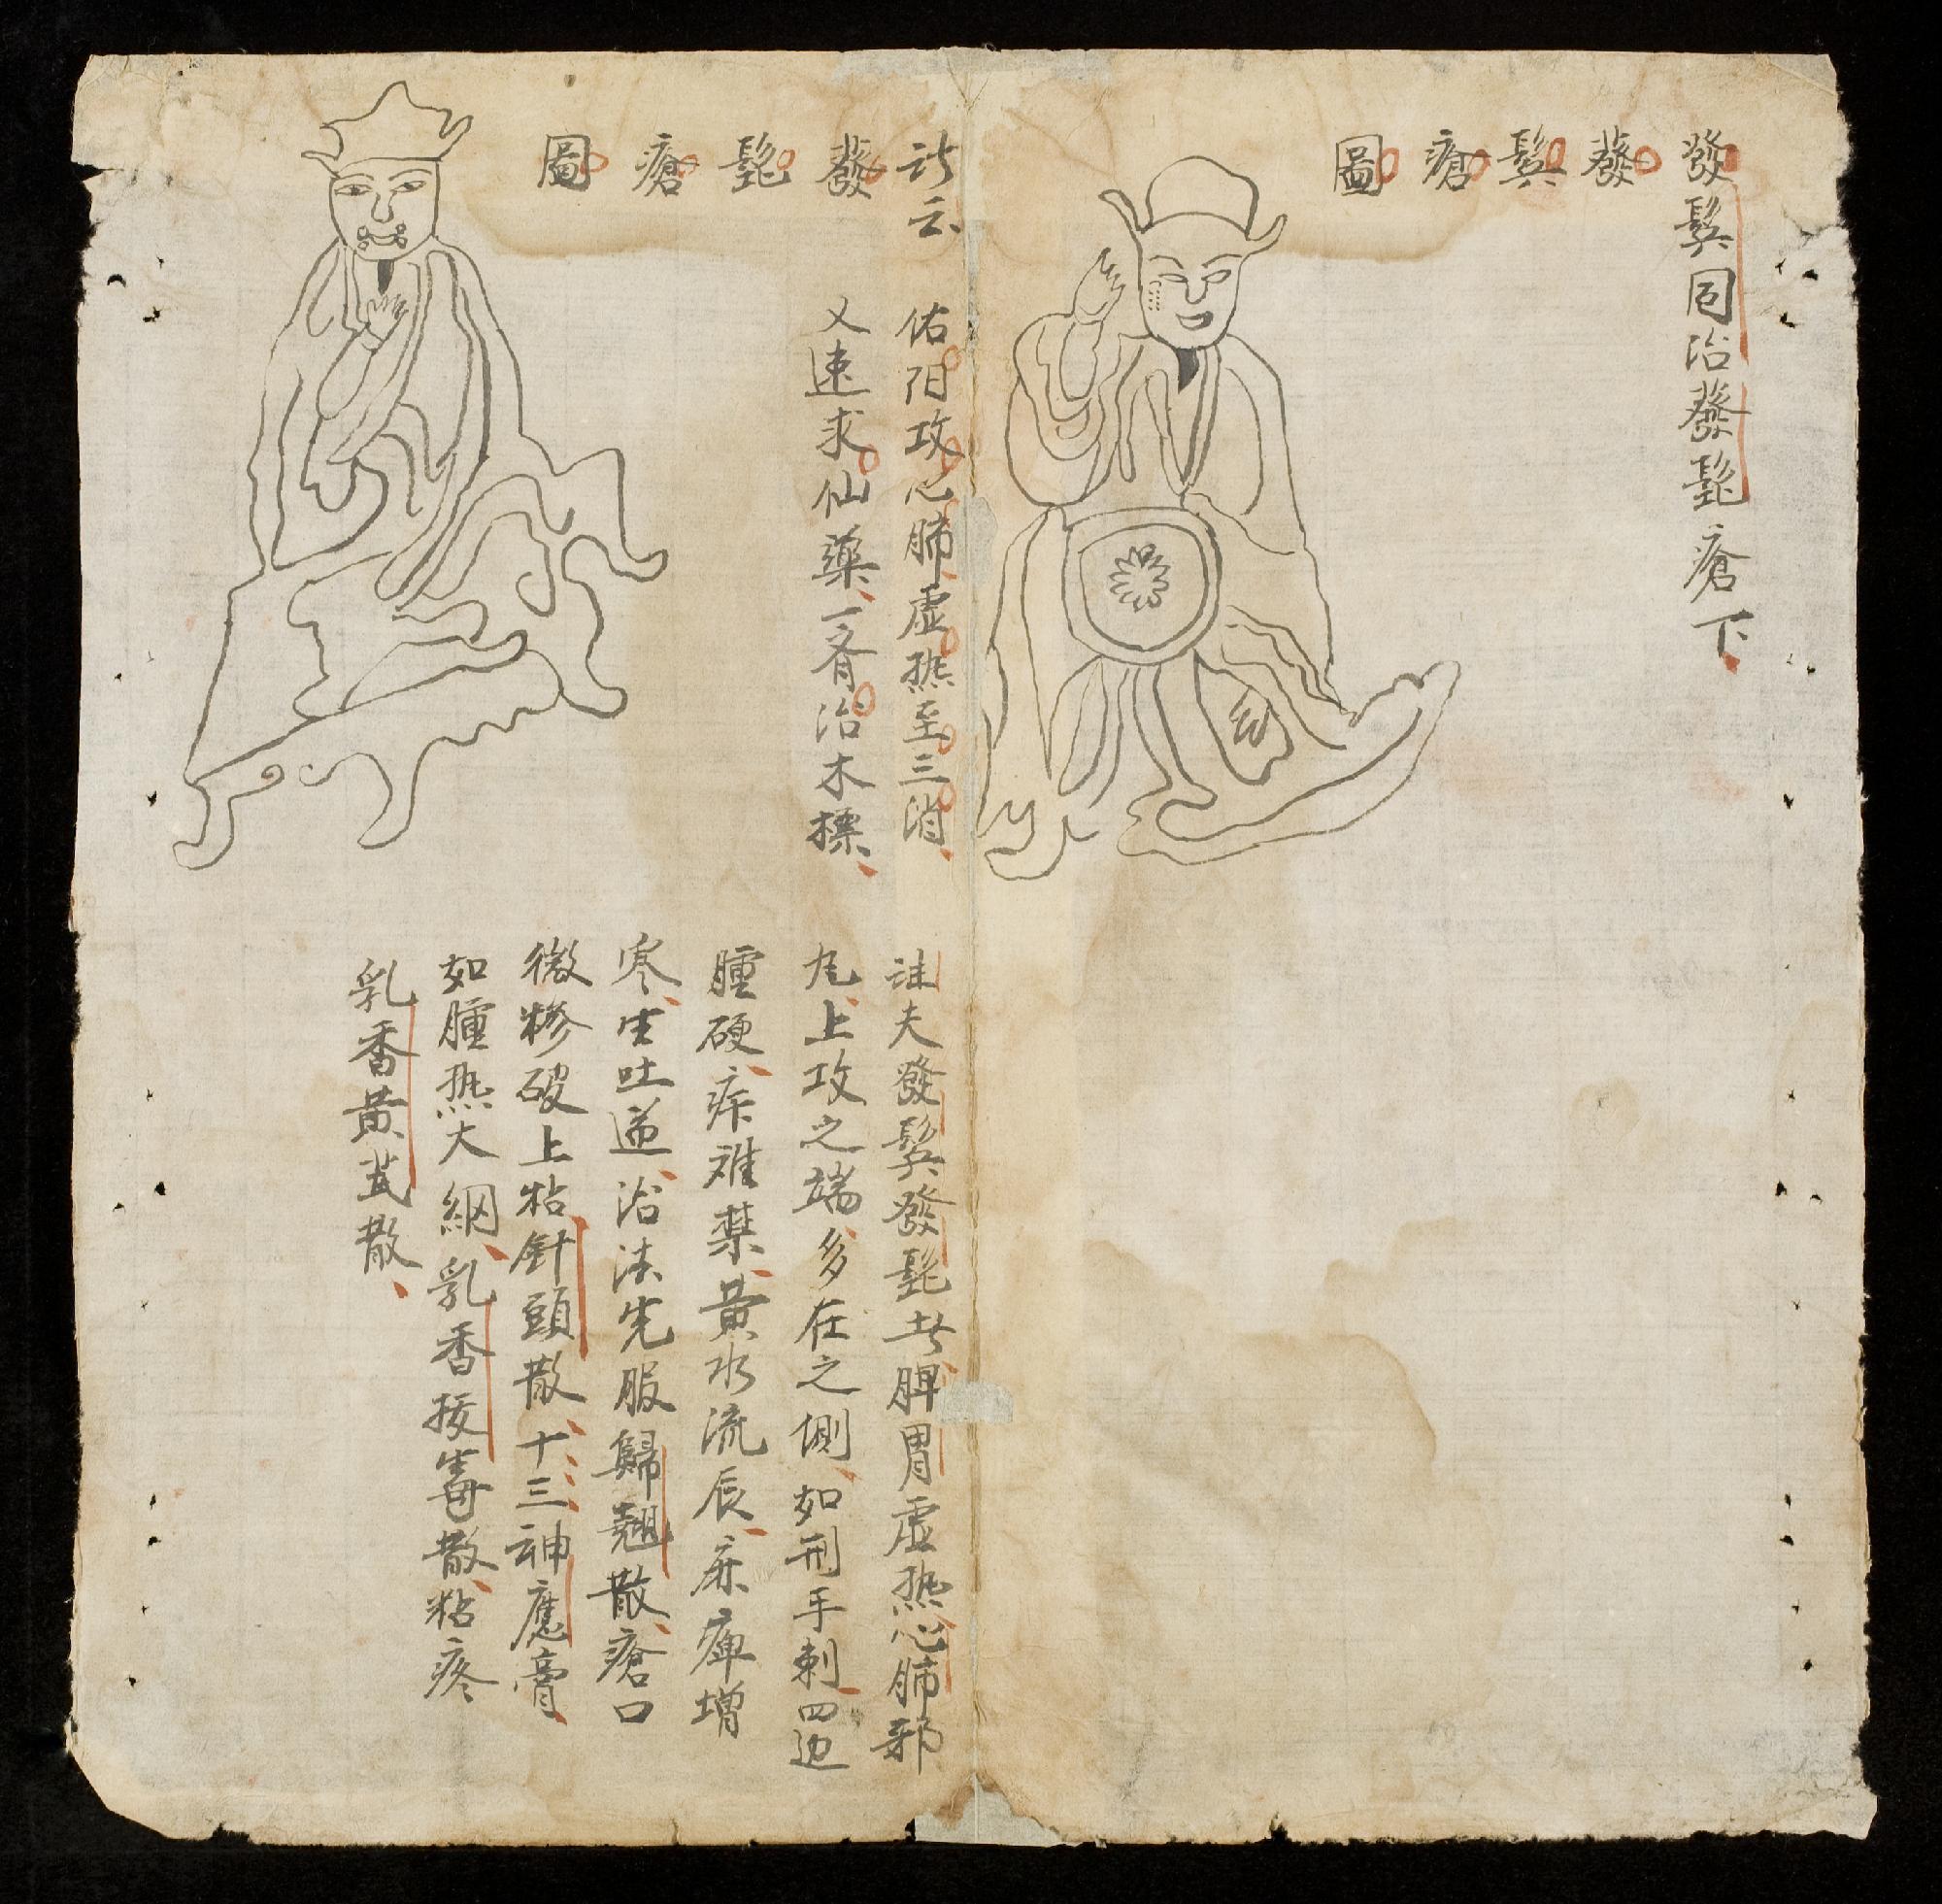 發鬓同治發髭瘡下
發鬓瘡圖
计云
佑阳攻心肺虚热至三消
乂速求仙藥一斉治木摽
發髭瘡圖
註夫發鬓發髭者脾胃虚热心肺邪
尾上攻之端多在之侧如刑手刺四边
腫硬疼难禁黄水流辰麻痺增
寒生吐逆治法先服歸翘散瘡口
微糁破上粘針頭散十三神應膏
如腫热大綱乳香拔毒散粘疼
乳香黄芪散